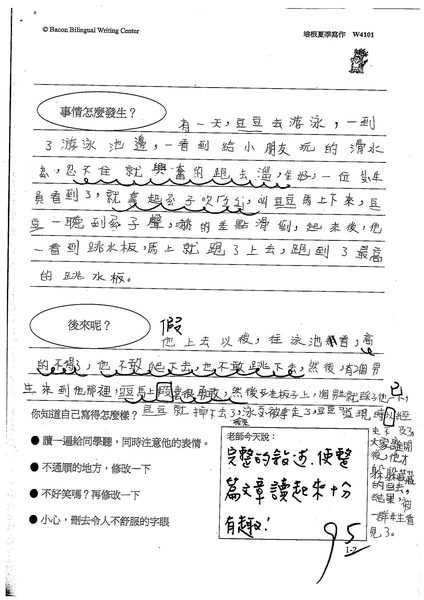 © Bacon Bilingual Writing Center
培根夏季寫作 W4101
事情怎麼發生？
有一天，豆豆去游泳，一到
了游泳池邊，一看到給小朋友玩的滑水
忍不住就興奮的跑去溜，一位
員看到了，就拿起 子吹了，叫豆豆馬上下來，豆
豆一聽到 子聲，嚇的差點滑倒，起來後，他
一看到跳水板，馬上就跑了上去，跑到了最高
的跳水板。
後來呢？
他上去以後，往泳池 看，高
的不得，他不敢爬下去，也不敢跳下去，然後，有個男
生來到他那裡，豆豆馬上 很勇敢，然後
你知道自己寫得怎麼樣？
豆豆就掉下去了，泳 豆豆發現時已經
來不及了，
大家離開
後，他才
躲躲藏藏
的回去，
結果，被
一群 生看
見了。
● 讀一遍給同學聽，同時注意他的表情。
● 不通順的地方，修改一下
● 不好笑嗎？再修改一下
● 小心，刪去令人不舒服的字眼
老師今天說：
完整的敘述，使整
篇文章讀起來十分
有趣！
95
1-2